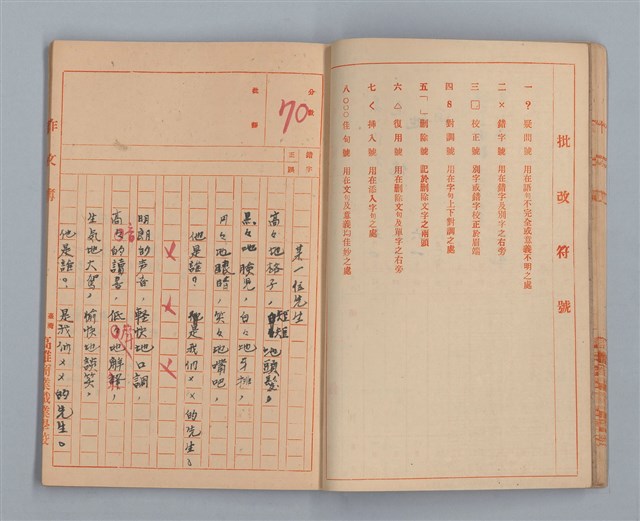 批改符號
一 ? 疑問號 用在語句不完全或意義不明之處
二 × 錯字號 用在錯字及別字之右旁
三 □ 校正號 別字或錯字校正於眉端
四 S 對調號 用在字句上下對調之處
五 「」 刪除號 記於刪除文字之兩頭
六 △ 復用號 用在刪除文句及單字之右旁
七 く 挿入號 用在添入字句之處
八 ○○○ 佳句號 用在文句及意義均佳妙之處
分數
70
批評
錯字
正誤
某一位先生
高々地格子，短短地頭髮，
黑々地臉兒，白々地牙排，
月々地眼睛，笑々地嘴吧，
他是誰？ 是我們××的先生。
明朗的声音，輕快地口調，
高音的讀書，低 地解釋，
生氣地大駡，愉快地談笑，
他是誰？ 是我們××的先生。
作文簿
高雄商業職業學校